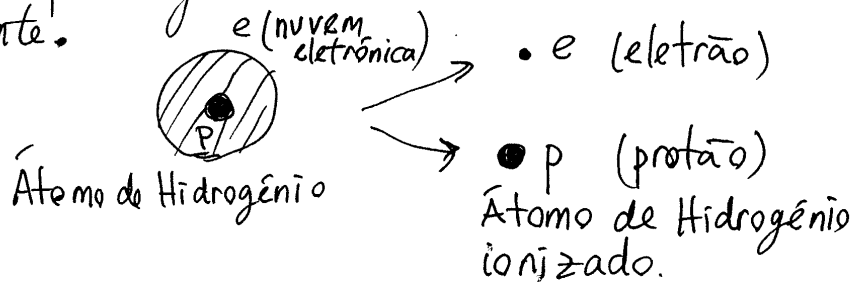 nte!
e (nuvem
eletrónica)
P
Átomo de Hidrogénio
e (eletrão)
p (protão)
Átomo de Hidrogénio
ionizado.